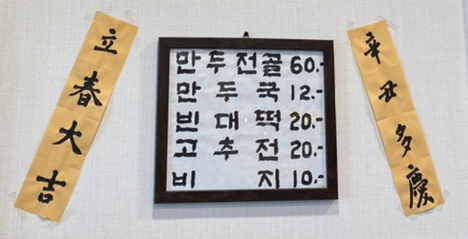 立春大吉
만두전골 60.-
만두국 12.-
빈대떡 20.-
고추전 20.-
비지 10.-
辛丑多慶